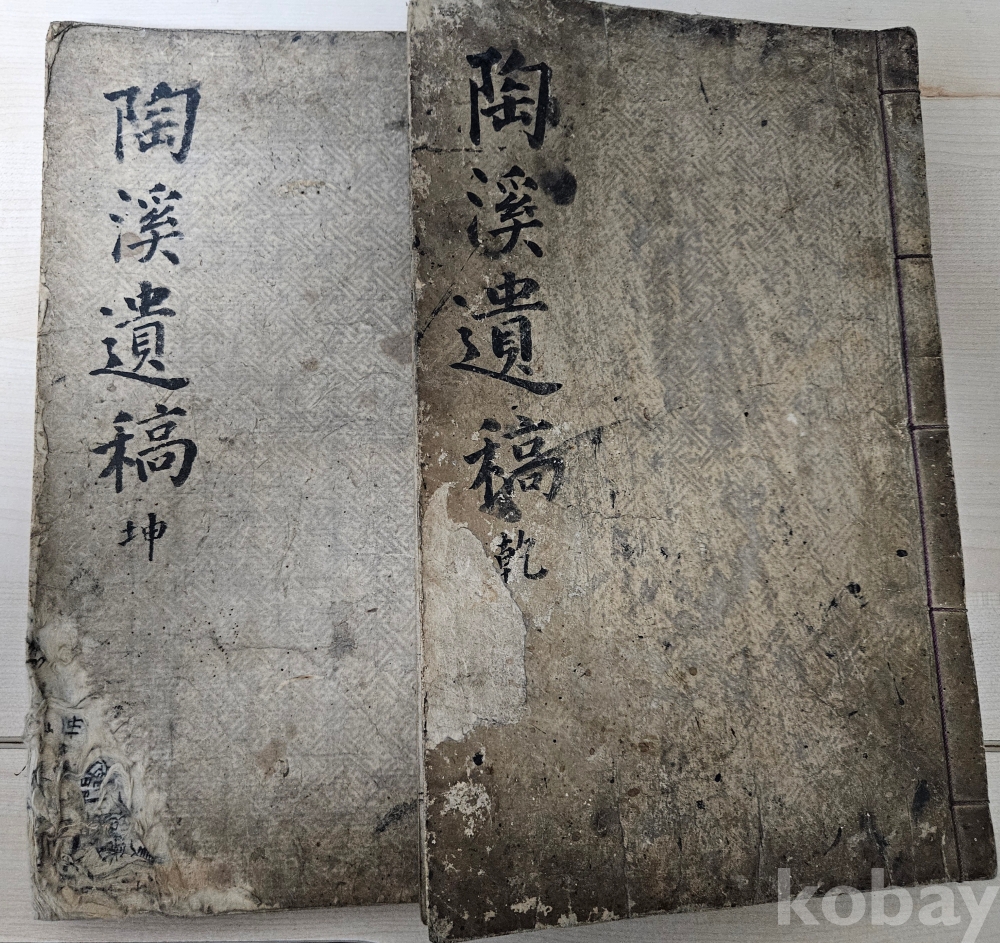 陶溪遺稿 乾
陶溪遺稿 坤
kobay